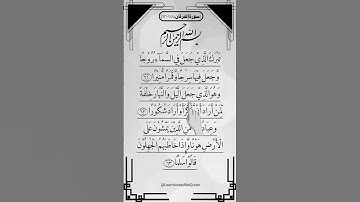 سورة الفرقان
بسم الله الرحمن الرحيم
تبارك الذي جعل في السماء بروجا
وجعل فيها سراجا وقمرا منيرا
وهو الذي جعل الليل والنهار خلفة
لمن أراد أو أراد شكورا
وعباد الذين يمشون على
الأرض هونا وإذا خاطبهم الجهلون
قالوا سلما
@LearntoreadtheQuran